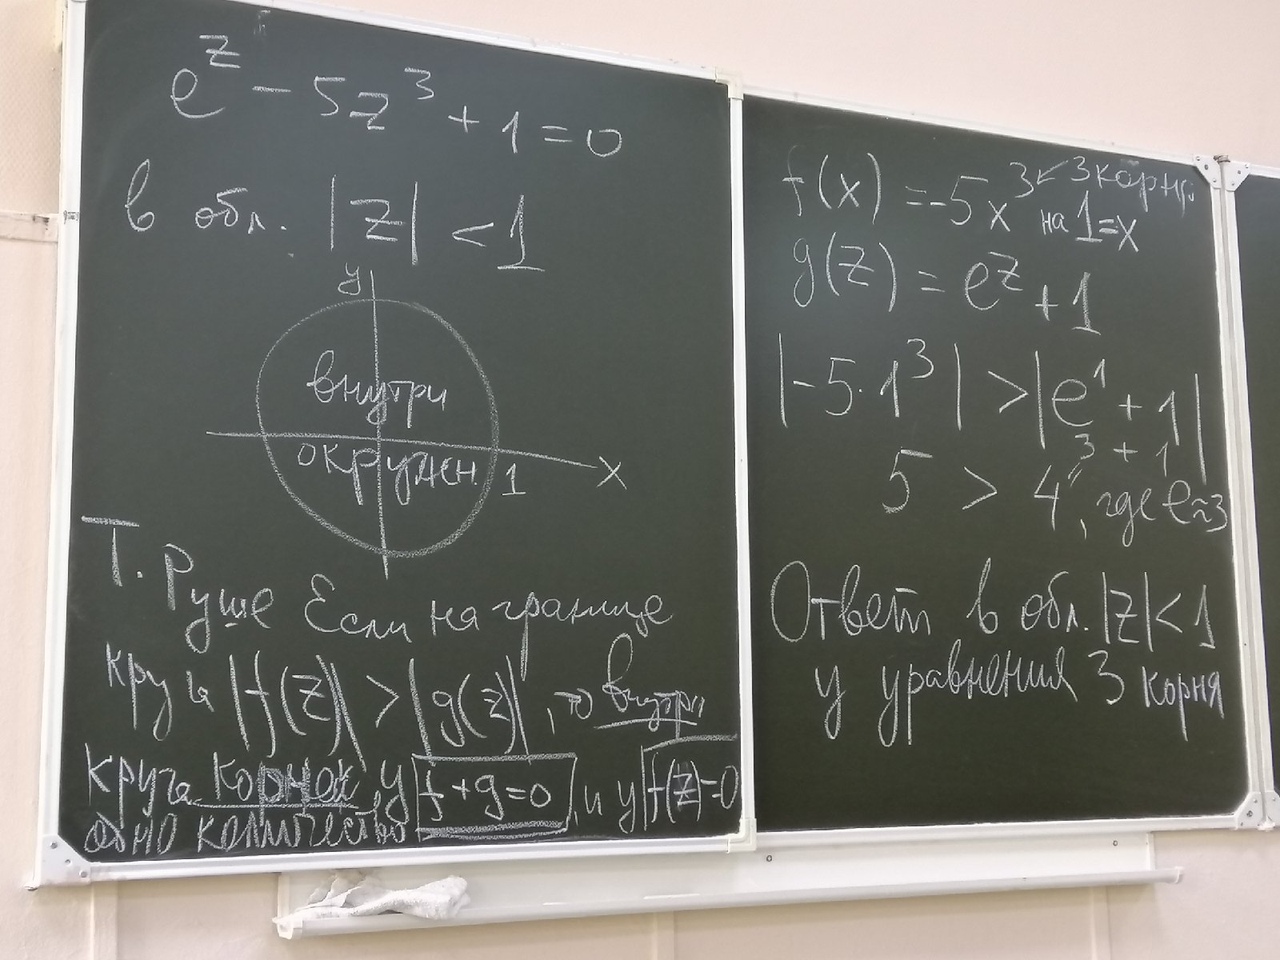 e^z - 5z^3 + 1 = 0
в обл. |z| < 1
y
внутри
окружн. 1 x
Т. Руше Если на границе
круга |f(z)| > |g(z)|, то внутри
круга корней у f+g=0 и у f(z)=0
одно количество
f(x) = -5x^3 ↙ 3 корня
на 1=x
g(z) = e^z + 1
|-5·1^3| > |e^1 + 1|
3 + 1
5 > 4, где e≈3
Ответ в обл. |z| < 1
у уравнения 3 корня